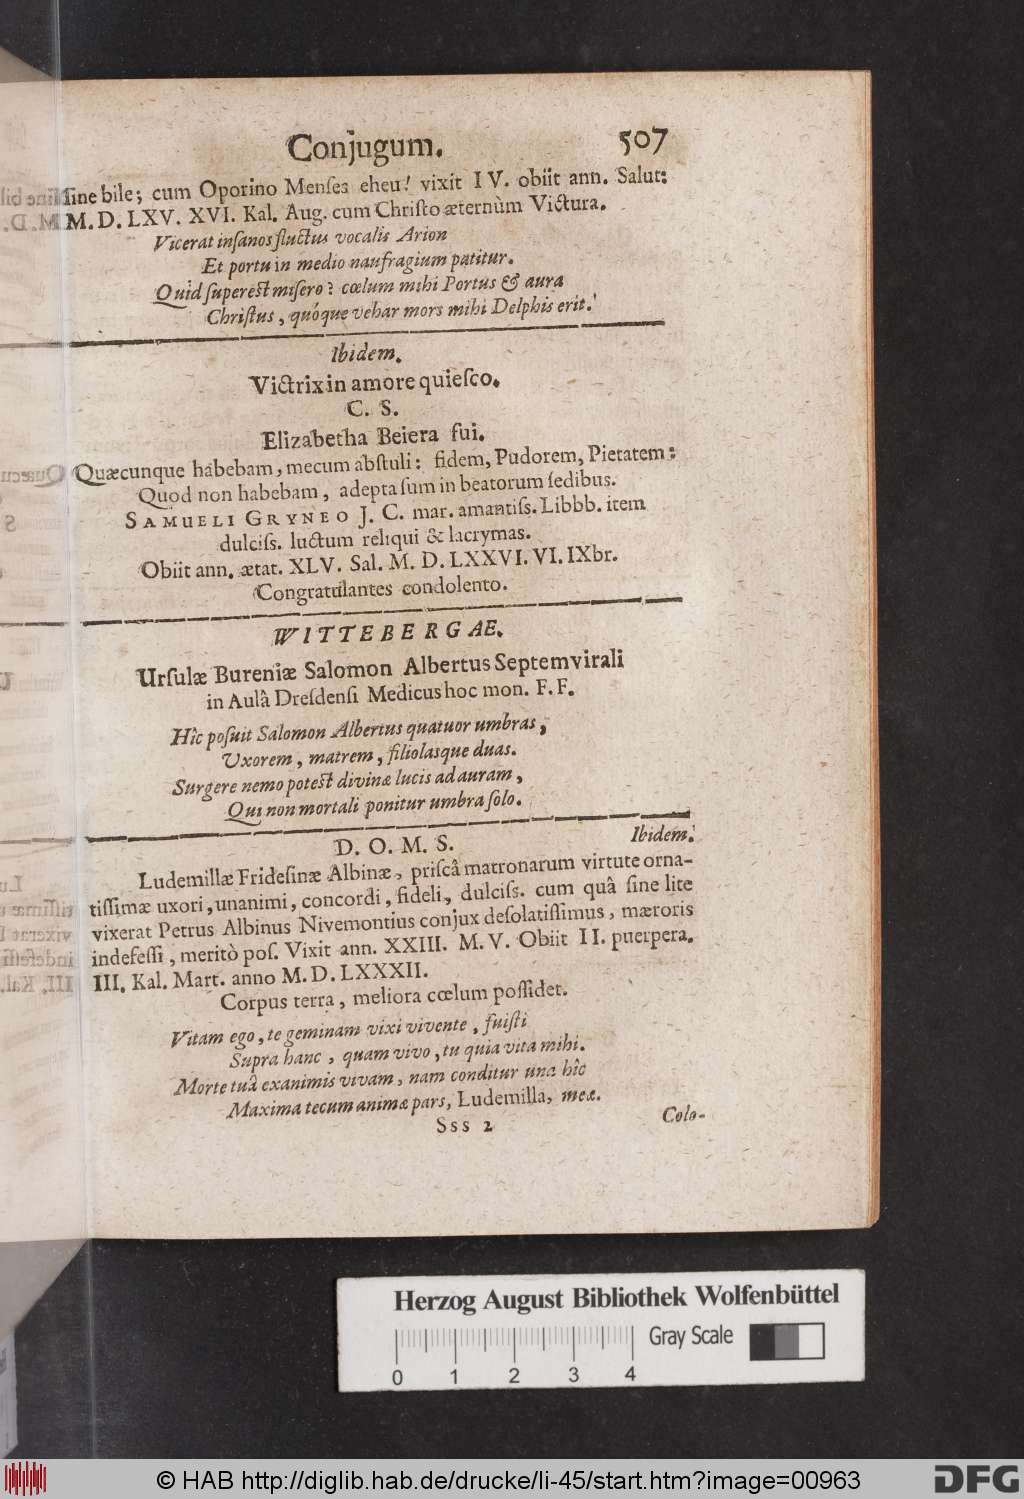 Conjugum. 507
ſine bile; cum Oporino Menſes eheu! vixit IV. obiit ann. Salut:
M. D. LXV. XVI. Kal. Aug. cum Chriſto æternùm Victura.
Vicerat inſanos fluctus vocalis Arion
Et portu in medio naufragium patitur.
Quid ſupereſt miſero? cœlum mihi Portus & aura
Chriſtus, quóque vehar mors mihi Delphis erit.
Ibidem.
Victrix in amore quieſco.
C. S.
Elizabetha Beiera fui.
Quæcunque habebam, mecum abſtuli: fidem, Pudorem, Pietatem:
Quod non habebam, adepta ſum in beatorum ſedibus.
SAMUELI GRYNEO J. C. mar. amantiſs. Libbb. item
dulciſs. luctum reliqui & lacrymas.
Obiit ann. ætat. XLV. Sal. M. D. LXXVI. VI. IXbr.
Congratulantes condolento.
WITTEBERGAE.
Urſulæ Bureniæ Salomon Albertus Septemvirali
in Aulâ Dresdenſi Medicus hoc mon. F. F.
Hîc poſuit Salomon Albertus quatuor umbras,
Uxorem, matrem, filiolasque duas.
Surgere nemo poteſt divinæ lucis ad auram,
Qui non mortali ponitur umbra ſolo.
D. O. M. S. Ibidem.
Ludemillæ Frideſinæ Albinæ, priſcâ matronarum virtute orna-
tiſſimæ uxori, unanimi, concordi, fideli, dulciſs. cum quâ ſine lite
vixerat Petrus Albinus Nivemontius conjux deſolatiſſimus, mæroris
indefeſſi, meritò poſ. Vixit ann. XXIII. M. V. Obiit II. puerpera.
III. Kal. Mart. anno M. D. LXXXII.
Corpus terra, meliora cœlum poſſidet.
Vitam ego, te geminam vixi vivente, fuiſti
Supra hanc, quam vivo, tu quia vita mihi.
Morte tuâ exanimis vivam, nam conditur una hîc
Maxima tecum animæ pars, Ludemilla, meæ.
Sss 2 Colo-
Herzog August Bibliothek Wolfenbüttel
Gray Scale
0 1 2 3 4
© HAB http://diglib.hab.de/drucke/li-45/start.htm?image=00963
DFG